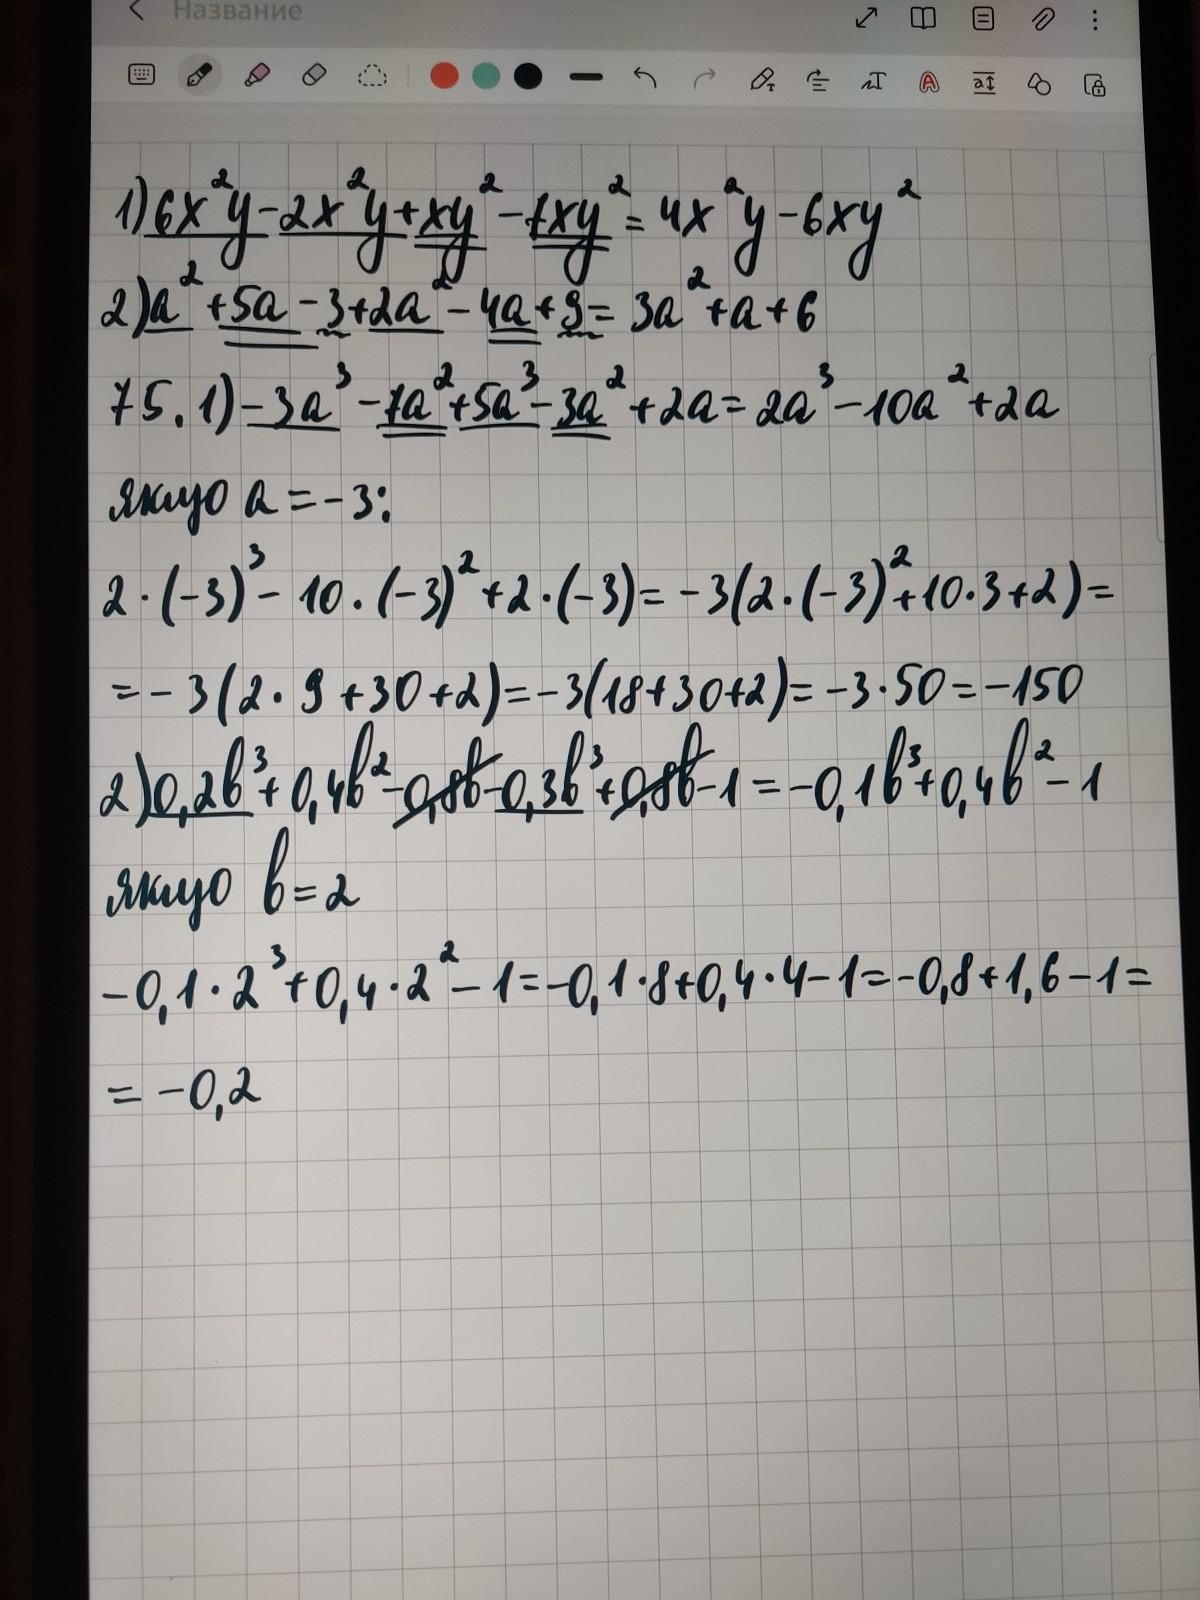 Название
1) 6x²y - 2x²y + xy² - 7xy² = 4x²y - 6xy²
2) a² + 5a - 3 + 2a² - 4a + 9 = 3a² + a + 6
75. 1) -3a³ - 7a² + 5a³ - 3a² + 2a = 2a³ - 10a² + 2a
якщо a = -3:
2·(-3)³ - 10·(-3)² + 2·(-3) = -3(2·(-3)² + 10·3 + 2) =
= -3(2·9 + 30 + 2) = -3(18 + 30 + 2) = -3·50 = -150
2) 0,2b³ + 0,4b² - 0,8b - 0,3b³ + 0,8b - 1 = -0,1b³ + 0,4b² - 1
якщо b = 2
-0,1·2³ + 0,4·2² - 1 = -0,1·8 + 0,4·4 - 1 = -0,8 + 1,6 - 1 =
= -0,2